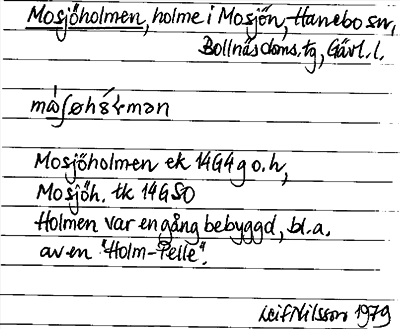 Mosjöholmen, holme i Mosjön, Hanebo sn,
Bollnäs doms. tg, Gävl. l.
Mosjöholmen ek 14G4g o.h,
Mosjöh. tk 14G SO
Holmen var en gång bebyggd, bl.a.
av en "Holm-Pelle".
Leif Nilsson 1979